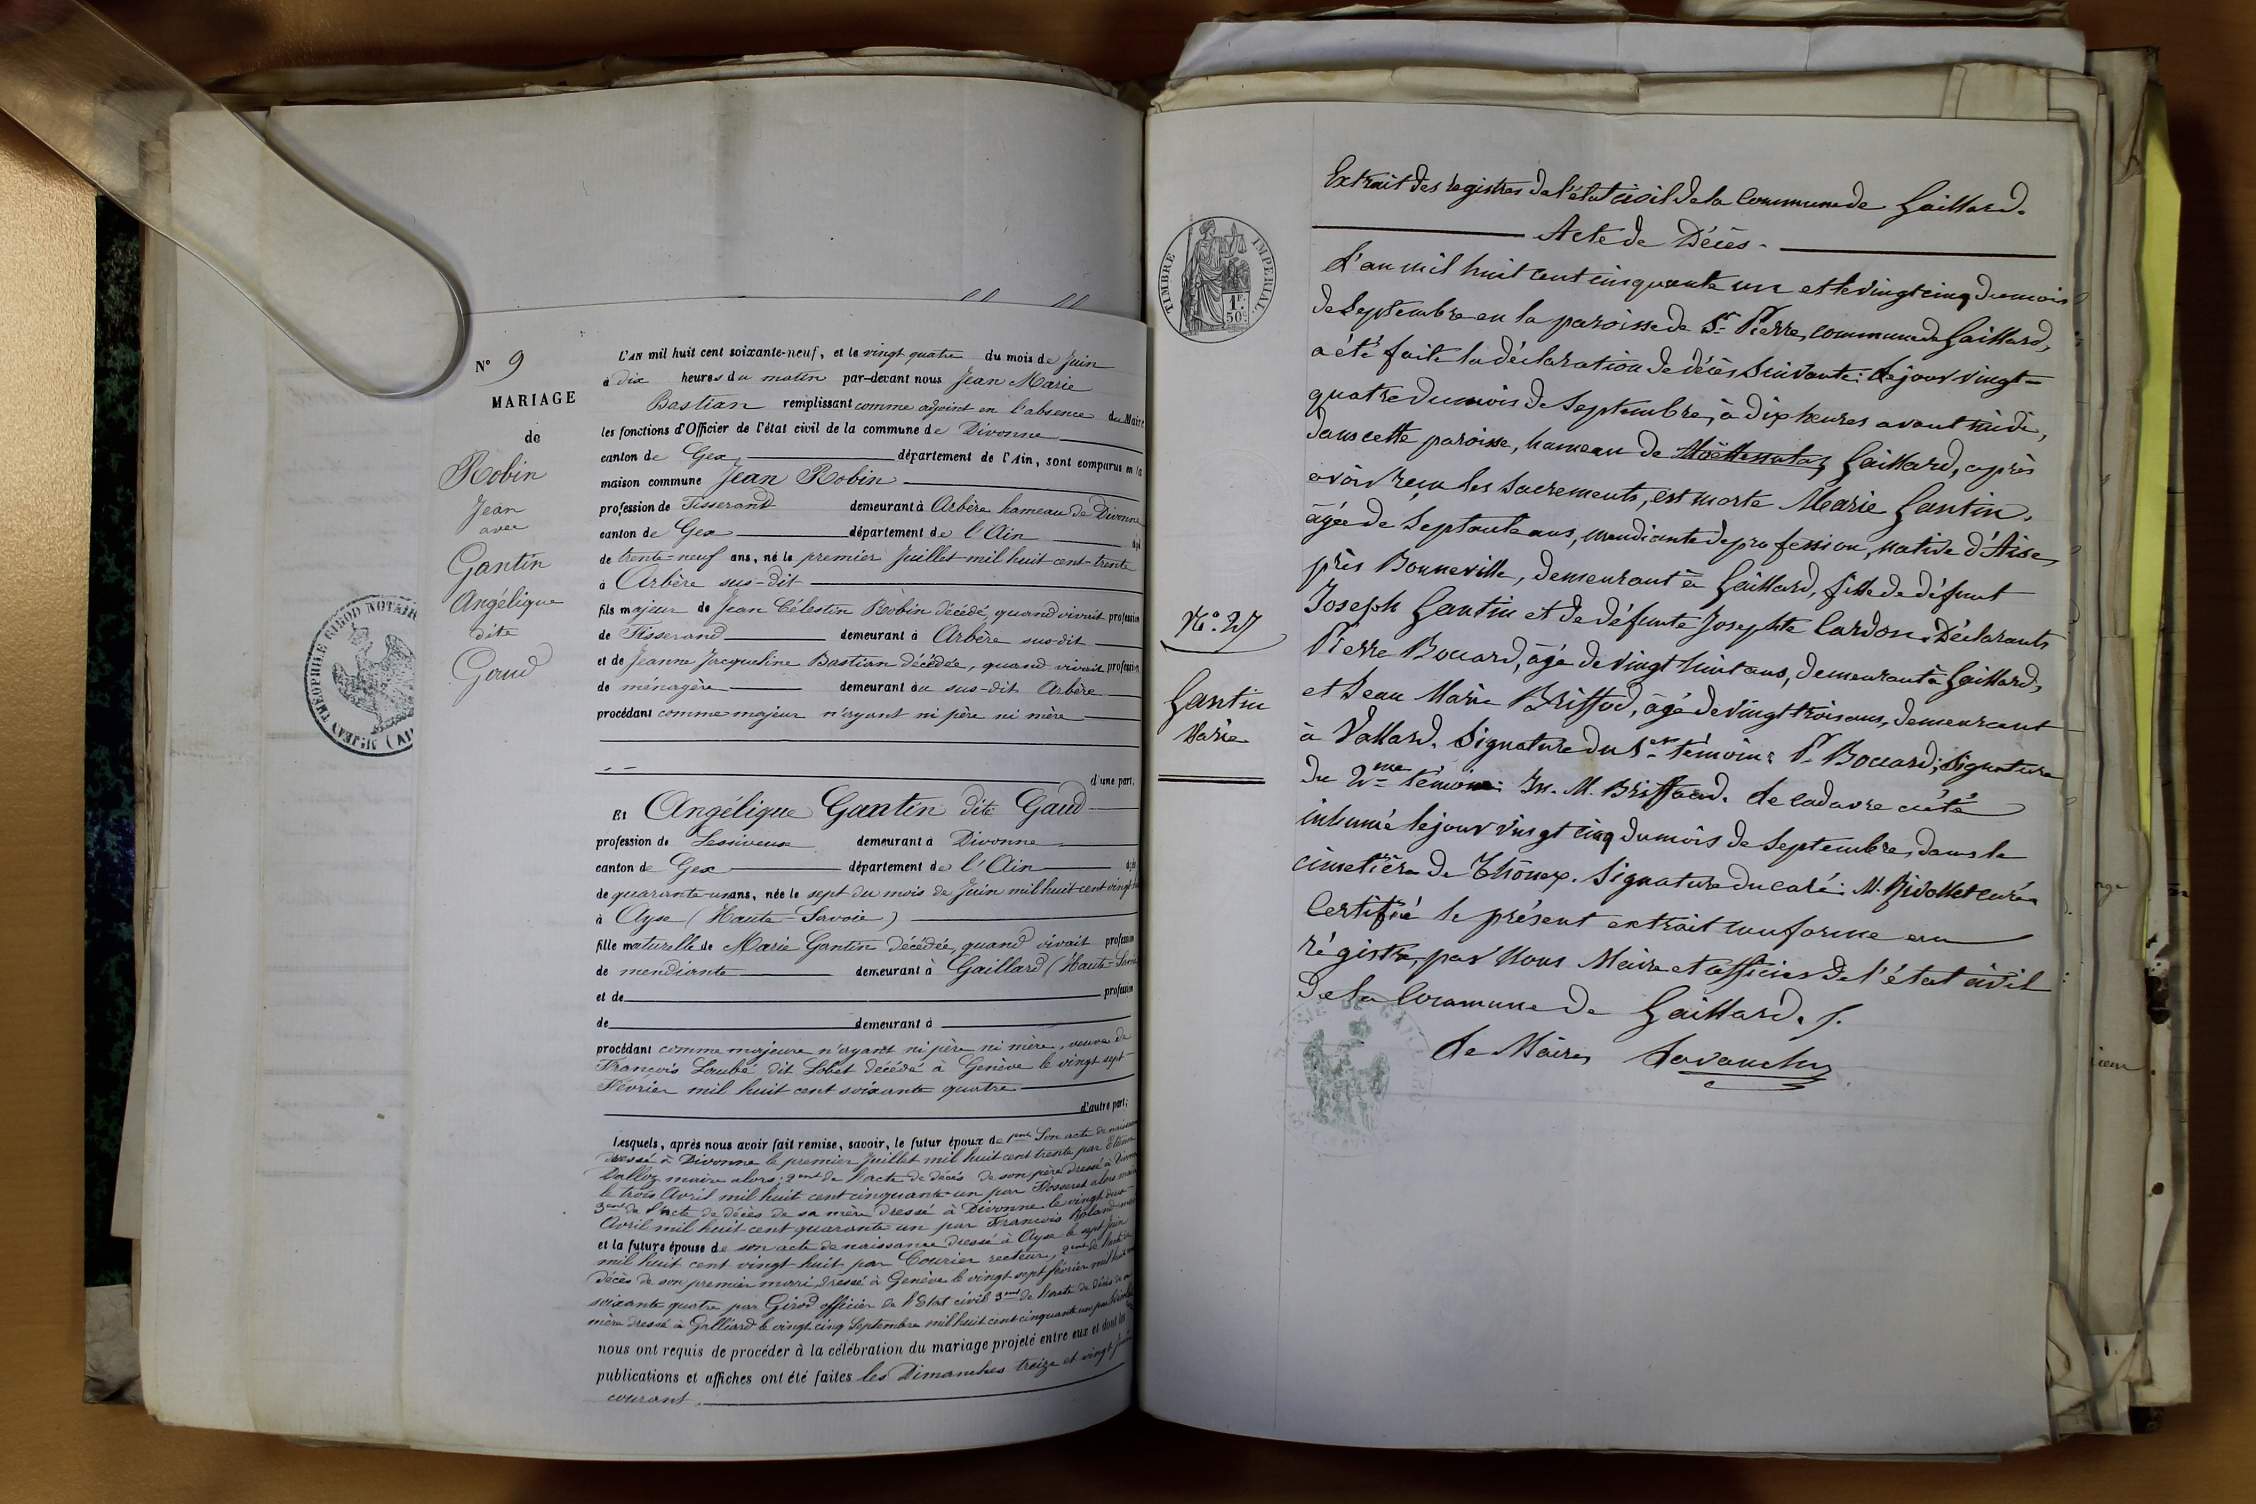 N° 9
MARIAGE
de
Robin
Jean
avec
Gantin
Angélique
dite
Gaud
L'AN mil huit cent soixante-neuf, et le vingt quatre du mois de Juin
à dix heures du matin par-devant nous Jean Marie
Bastian remplissant comme adjoint en l'absence du Maire
les fonctions d'Officier de l'état civil de la commune de Divonne
canton de Gex département de l'Ain, sont comparus en la
maison commune Jean Robin
profession de Tisserand demeurant à Arbère hameau de Divonne
canton de Gex département de l'Ain
de trente-neuf ans, né le premier Juillet mil huit cent trente
à Arbère sus-dit
fils majeur de Jean Célestin Robin décédé, quand vivait profession
de Tisserand demeurant à Arbère sus-dit
et de Jeanne Jacqueline Bastian décédée, quand vivait profession
de ménagère demeurant au sus-dit Arbère
procédant comme majeur n'ayant ni père ni mère
d'une part,
Et Angélique Gantin dite Gaud
profession de Lessiveuse demeurant à Divonne
canton de Gex département de l'Ain
de quarante-un ans, née le sept du mois de Juin mil huit cent vingt
à Ayse (Haute-Savoie)
fille naturelle de Marie Gantin décédée, quand vivait profession
de mendiante demeurant à Gaillard (Haute-Savoie
et de profession
de demeurant à
procédant comme majeure n'ayant ni père ni mère, veuve de
François Loubé dit Lobet décédé à Genève le vingt sept
Février mil huit cent soixante quatre
d'autre part;
Lesquels, après nous avoir fait remise, savoir, le futur époux de son acte de naissance
dressé à Divonne le premier Juillet mil huit cent trente par Etienne
Dalloz maire alors; 2ent de l'acte de décès de son père dressé à Divonne
le trois Avril mil huit cent cinquante-un par Fosseret alors maire
3ent de l'acte de décès de sa mère dressé à Divonne le vingt deux
Avril mil huit cent quarante un par François Roland maire
et la future épouse de son acte de naissance dressé à Ayse le sept Juin
mil huit cent vingt huit par Courier recteur, 2ent de l'acte de
décès de son premier mari, dressé à Genève le vingt sept février mil huit cent
soixante quatre par Girod officier de l'Etat civil 3ent de l'acte de décès de sa
mère dressé à Galliard le vingt cinq Septembre mil huit cent cinquante un par
nous ont requis de procéder à la célébration du mariage projeté entre eux et dont les
publications et affiches ont été faites les Dimanches treize et vingt juin
courant
THÉOPHILE GIROD NOTAIRE
TIMBRE IMPÉRIAL
1F. 50c
Extrait des registres de l'état civil de la Commune de Gaillard.
Acte de Décès.
L'an mil huit cent cinquante un et le vingt cinq du mois
de Septembre en la paroisse de St. Pierre, commune de Gaillard,
a été faite la déclaration de décès suivante: Le jour vingt-
quatre du mois de Septembre, à dix heures avant midi,
dans cette paroisse, hameau de Gaillard, après
avoir reçu les Sacrements, est morte Marie Gantin,
âgée de Septante ans, mendiante de profession, native d'Aise,
près Bonneville, demeurant à Gaillard, fille de défunt
Joseph Gantin et de défunte Josephte Cardon. Déclarants
Pierre Bocard, âgé de vingt huit ans, demeurant à Gaillard,
et Jean Marie Briffod, âgé de vingt trois ans, demeurant
à Vallard. Signature du 1er témoin: P. Bocard; signature
du 2me témoin: Jn. M. Briffaud. Le cadavre a été
inhumé le jour vingt cinq du mois de Septembre, dans le
cimetière de Thônex. Signature du curé: M. Bidollet curé.
Certifié le présent extrait conforme au
régistre, par Nous Maire et officier de l'état civil
de la Commune de Gaillard.
Le Maire, Lavanchy
N°. 27
Gantin
Marie